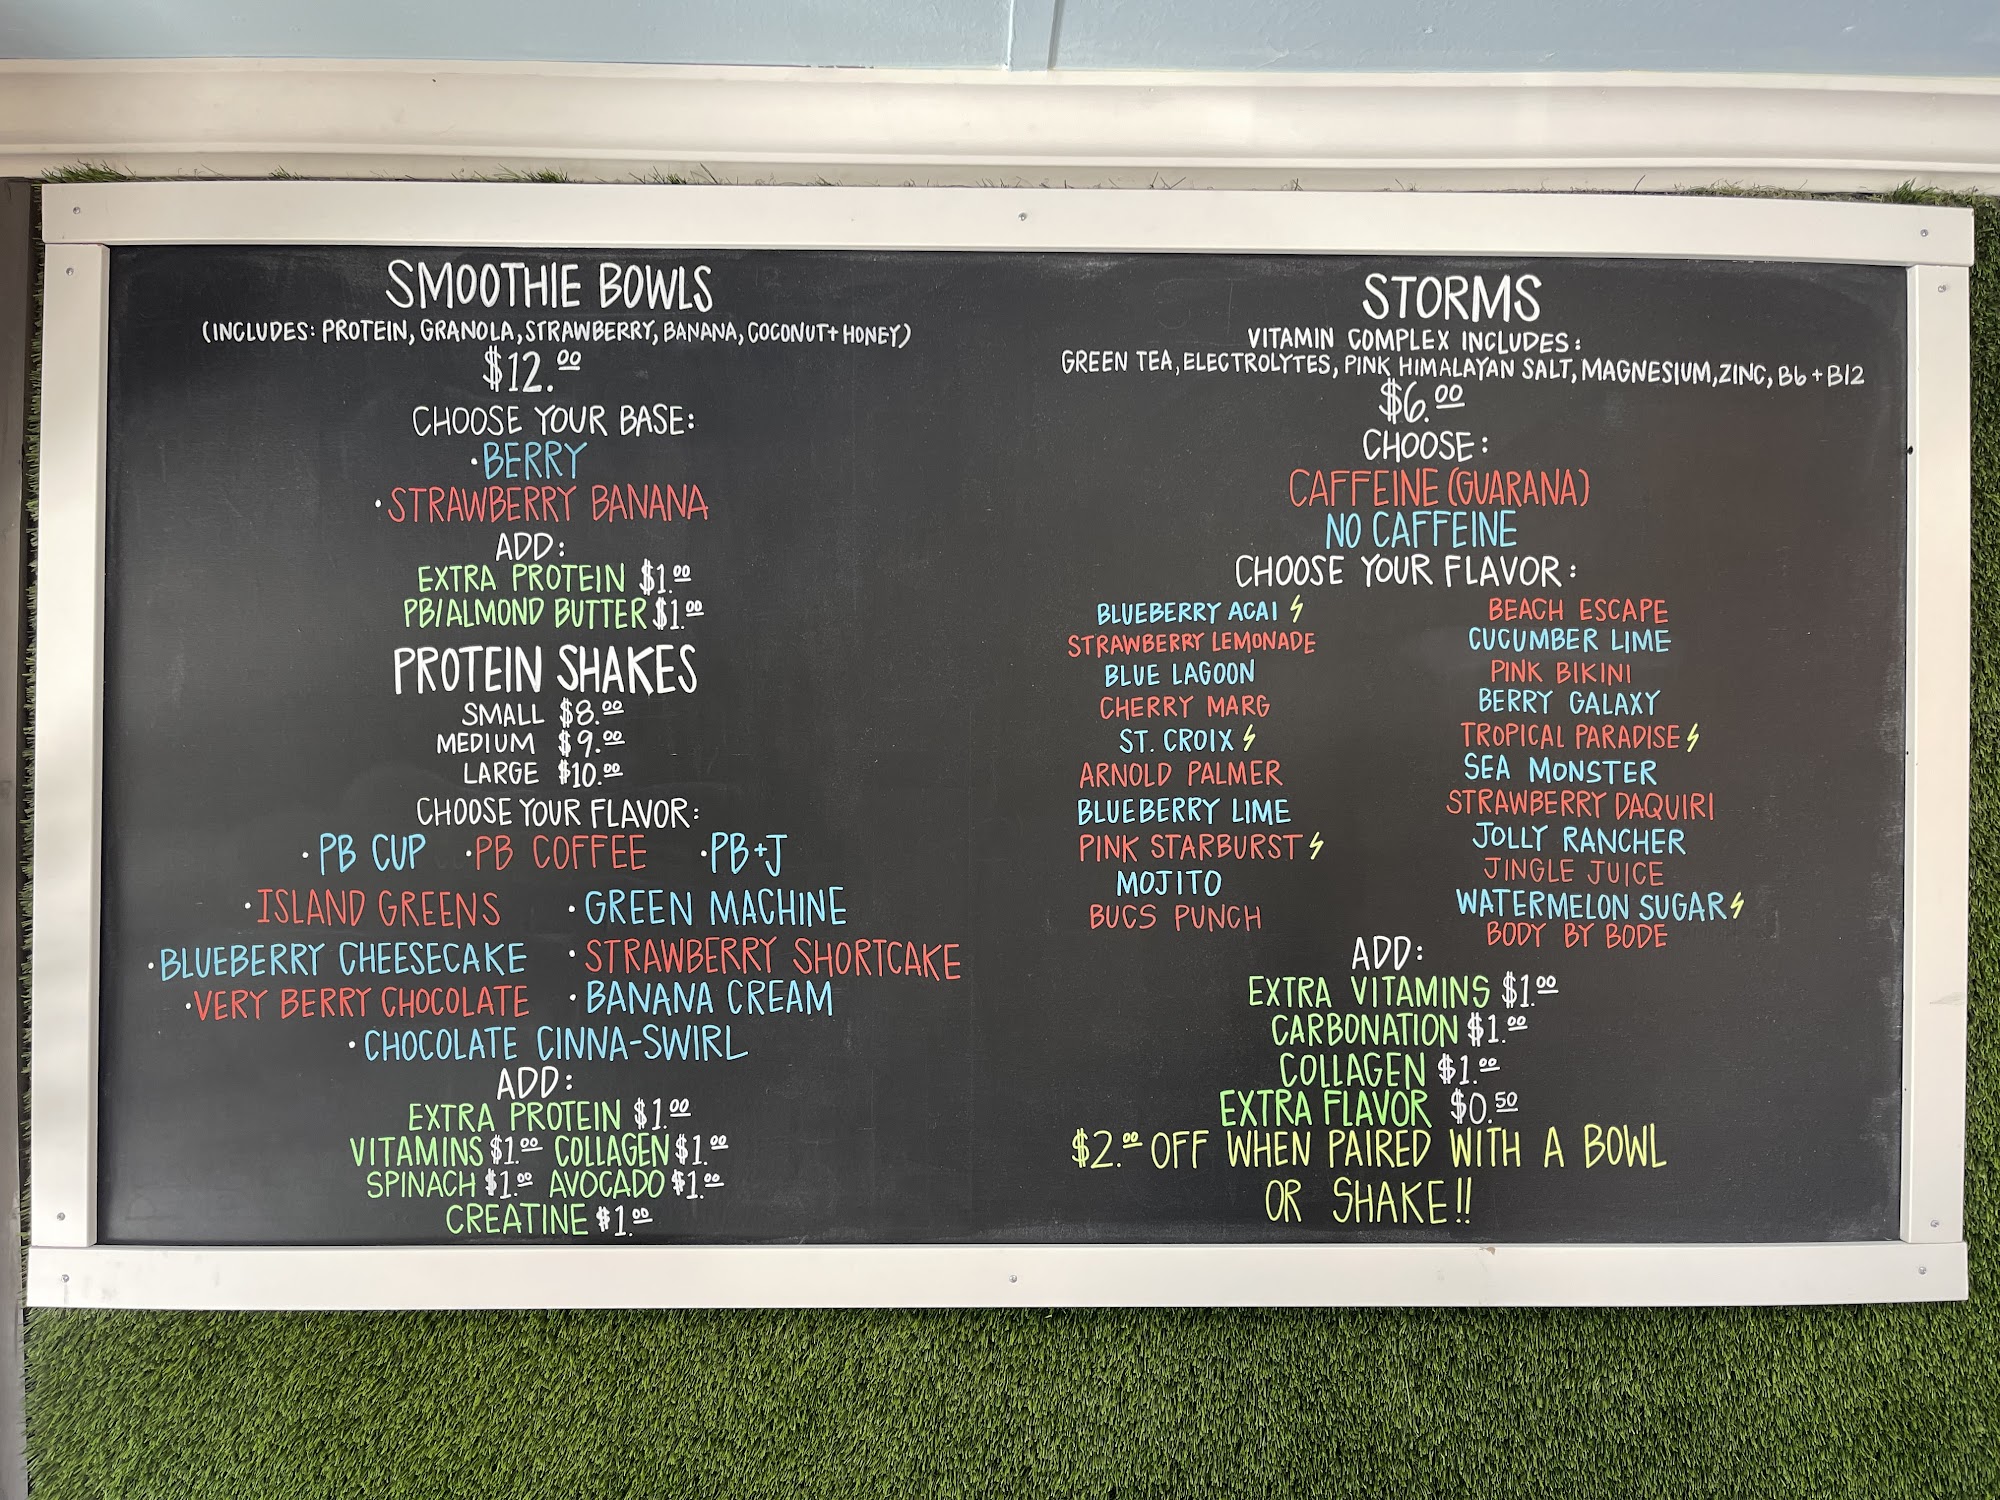 SMOOTHIE BOWLS
(INCLUDES: PROTEIN, GRANOLA, STRAWBERRY, BANANA, COCONUT + HONEY)
$12.00
CHOOSE YOUR BASE:
· BERRY
· STRAWBERRY BANANA
ADD:
EXTRA PROTEIN $1.00
PB/ALMOND BUTTER $1.00
PROTEIN SHAKES
SMALL $8.00
MEDIUM $9.00
LARGE $10.00
CHOOSE YOUR FLAVOR:
· PB CUP · PB COFFEE · PB+J
· ISLAND GREENS · GREEN MACHINE
· BLUEBERRY CHEESECAKE · STRAWBERRY SHORTCAKE
· VERY BERRY CHOCOLATE · BANANA CREAM
· CHOCOLATE CINNA-SWIRL
ADD:
EXTRA PROTEIN $1.00
VITAMINS $1.00 COLLAGEN $1.00
SPINACH $1.00 AVOCADO $1.00
CREATINE $1.00
STORMS
VITAMIN COMPLEX INCLUDES:
GREEN TEA, ELECTROLYTES, PINK HIMALAYAN SALT, MAGNESIUM, ZINC, B6 + B12
$6.00
CHOOSE:
CAFFEINE (GUARANA)
NO CAFFEINE
CHOOSE YOUR FLAVOR:
BLUEBERRY ACAI
STRAWBERRY LEMONADE
BLUE LAGOON
CHERRY MARG
ST. CROIX
ARNOLD PALMER
BLUEBERRY LIME
PINK STARBURST
MOJITO
BUCS PUNCH
BEACH ESCAPE
CUCUMBER LIME
PINK BIKINI
BERRY GALAXY
TROPICAL PARADISE
SEA MONSTER
STRAWBERRY DAQUIRI
JOLLY RANCHER
JINGLE JUICE
WATERMELON SUGAR
BODY BY BODE
ADD:
EXTRA VITAMINS $1.00
CARBONATION $1.00
COLLAGEN $1.00
EXTRA FLAVOR $0.50
$2.00 OFF WHEN PAIRED WITH A BOWL
OR SHAKE!!